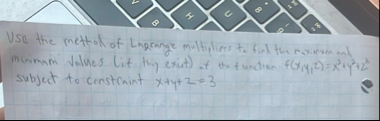 Use the method of Lagrange multipliers to find the maximum and
minimum values (if they exist) of the function f(x,y,z)=x²+y²+z²
subject to constraint x+y+z=3